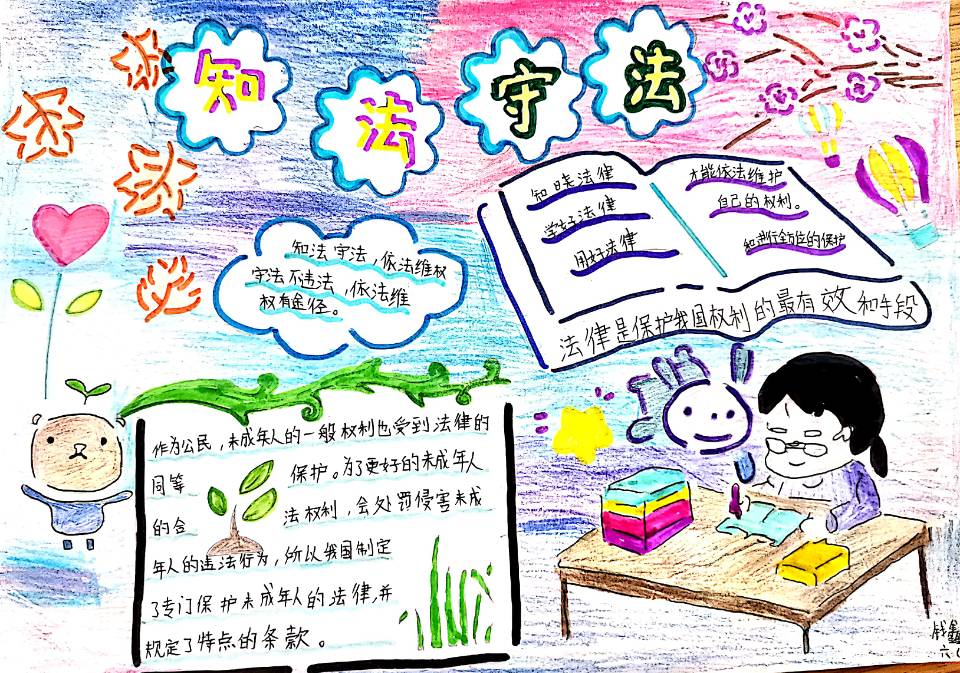 知法守法
知法守法,依法维权
守法不违法,依法维
权有途径。
知晓法律
学好法律
用好法律
才能依法维护
自己的权利。
和进行全方位的保护
法律是保护我国权利的最有效和手段
作为公民,未成年人的一般权利也受到法律的
同等 保护。为了更好的未成年人
的合 法权利,会处罚侵害未成
年人的违法行为,所以我国制定
了专门保护未成年人的法律,并
规定了特点的条款。